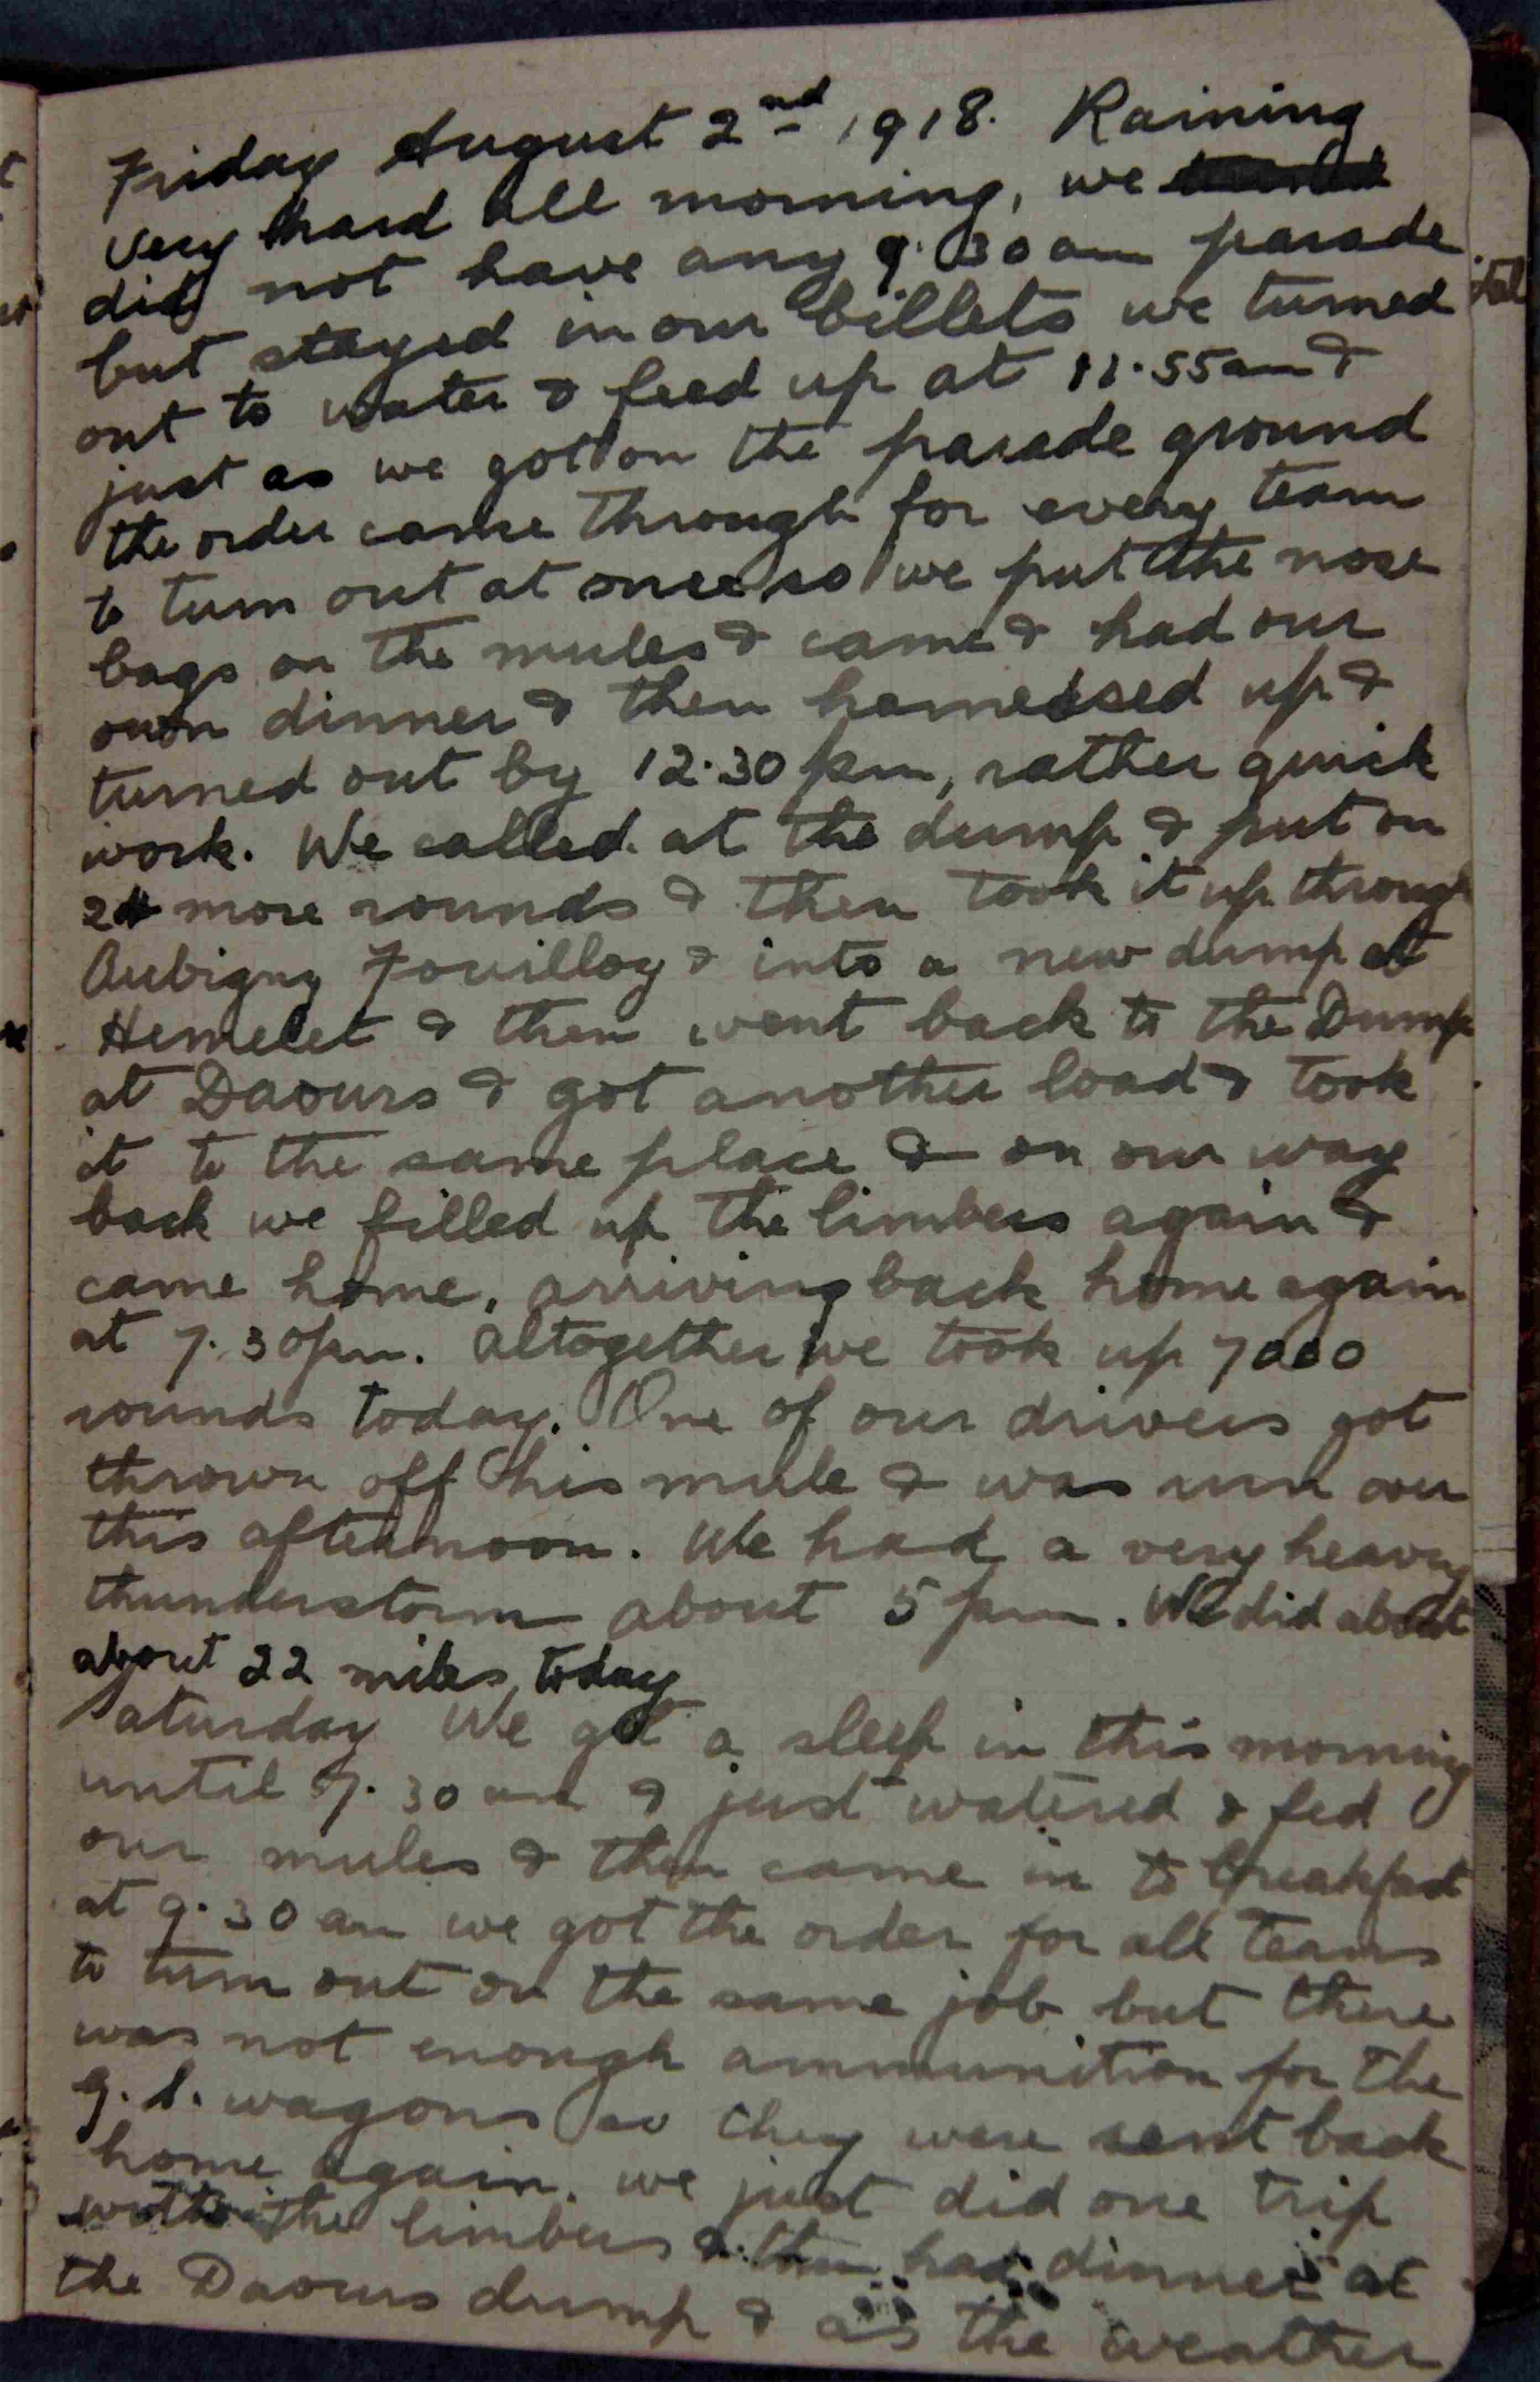 Friday August 2nd 1918. Raining
very hard all morning, we
did not have any 9.30 am parade
but stayed in our billets we turned
out to water & feed up at 11.55 am &
just as we got on the parade ground
the order came through for every team
to turn out at once so we put the nose
bags on the mules & came & had our
own dinner & then harnessed up &
turned out by 12.30 pm, rather quick
work. We called at the dump & put on
24 more rounds & then took it up through
Aubigny Fouilloy & into a new dump at
Hemelet & then went back to the Dump
at Daours & got another load & took
it to the same place & on our way
back we filled up the limbers again &
came home, arriving back home again
at 7.30 pm. Altogether we took up 7000
rounds today. One of our drivers got
thrown off his mule & was run over
this afternoon. We had a very heavy
thunderstorm about 5 pm. We did about
about 22 miles today
Saturday We got a sleep in this morning
until 7.30 am & just watered & fed
our mules & then came in to breakfast
at 9.30 am we got the order for all teams
to turn out on the same job but there
was not enough ammunition for the
g.s. wagons so they were sent back
home again. we just did one trip
with the limbers & then had dinner at
the Daours dump & as the weather